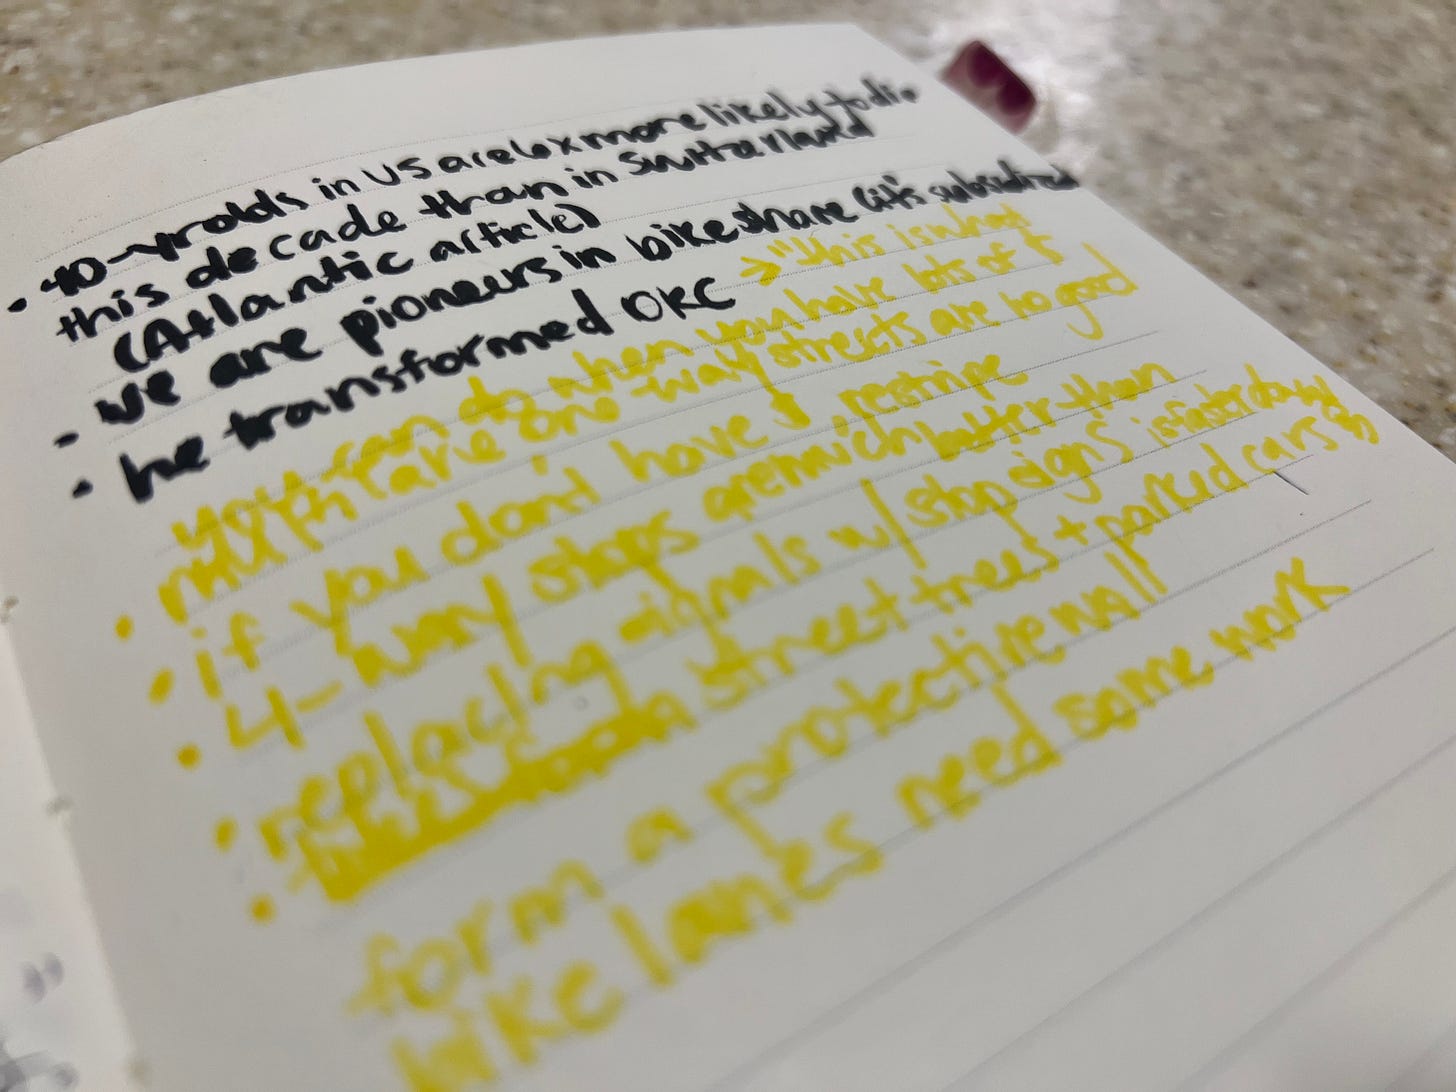 • 40-yrolds in US are 6x more likely to die
this decade than in Switzerland
(Atlantic article)
• we are pioneers in bikeshare (it's subsidized
• he transformed OKC → "this is what
you can do when you have lots of $
• multi lane one-way streets are no good
• if you don't have $, restripe
• 4-way stops are much better than
• replacing signals w/ stop signs is faster
• street trees + parked cars
form a protective wall
bike lanes need some work